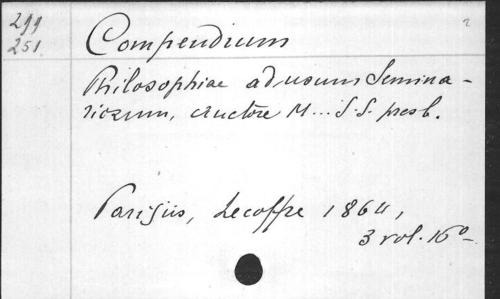 299
251
Compendium
Philosophiae ad usum Semina-
riorum, auctore M... S. S. presb.
Parisiis, Lecoffre 1864,
3 vol. 16º